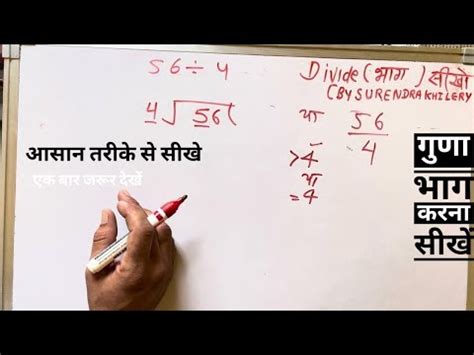 56÷4
Divide (भाग) सीखो
(BY SURENDRA KHILERY
4√56(
या 56/4
>4
या
=4
आसान तरीके से सीखे
एक बार जरूर देखें
गुणा
भाग
करना
सीखें